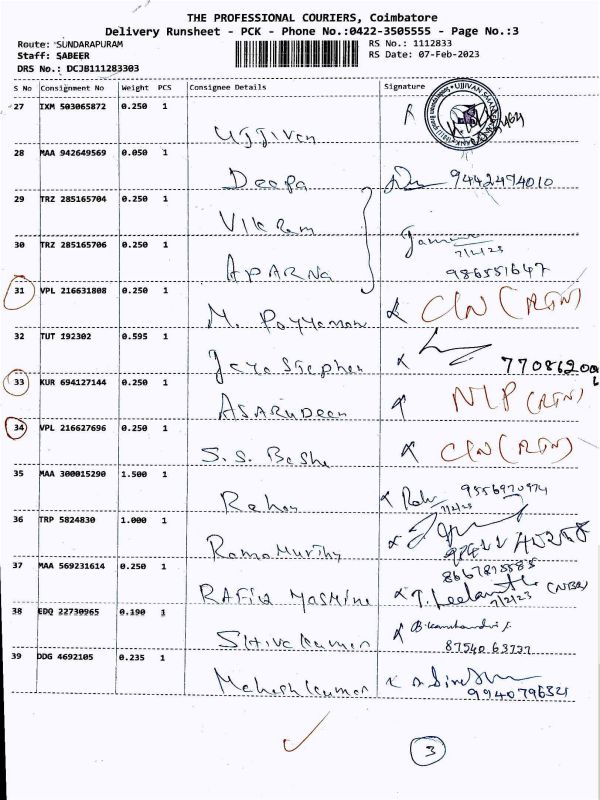 THE PROFESSIONAL COURIERS, Coimbatore
Delivery Runsheet - PCK - Phone No.:0422-3505555 - Page No.:3
Route: SUNDARAPURAM
RS No.: 1112833
Staff: SABEER
RS Date: 07-Feb-2023
DRS No.: DCJB111283303
S No Consignment No Weight PCS Consignee Details Signature
27 IXM 503065872 0.250 1
Ujjivan
28 MAA 942649569 0.050 1
Deepa 9442474010
29 TRZ 285165704 0.250 1
Vikram
30 TRZ 285165706 0.250 1
7/2/23
APARNA 986551647
31 VPL 216631808 0.250 1
M. Poyyamon C/N (RTN)
32 TUT 192302 0.595 1
Jaya Stephen
33 KUR 694127144 0.250 1
ASARUDEEN N/P (RTN)
34 VPL 216627696 0.250 1
S.S. Basha C/N (RTN)
35 MAA 300015290 1.500 1
9556970974
7/2/23
36 TRP 5824830 1.000 1
RamaMurthy
37 MAA 569231614 0.250 1
8667815585
RAFIQ YASMINE (NBR)
7/2/23
38 EDQ 22730965 0.190 1
Shivakumar 87540 63737
39 DDG 4692105 0.235 1
Maheshkumar 9940796321
3